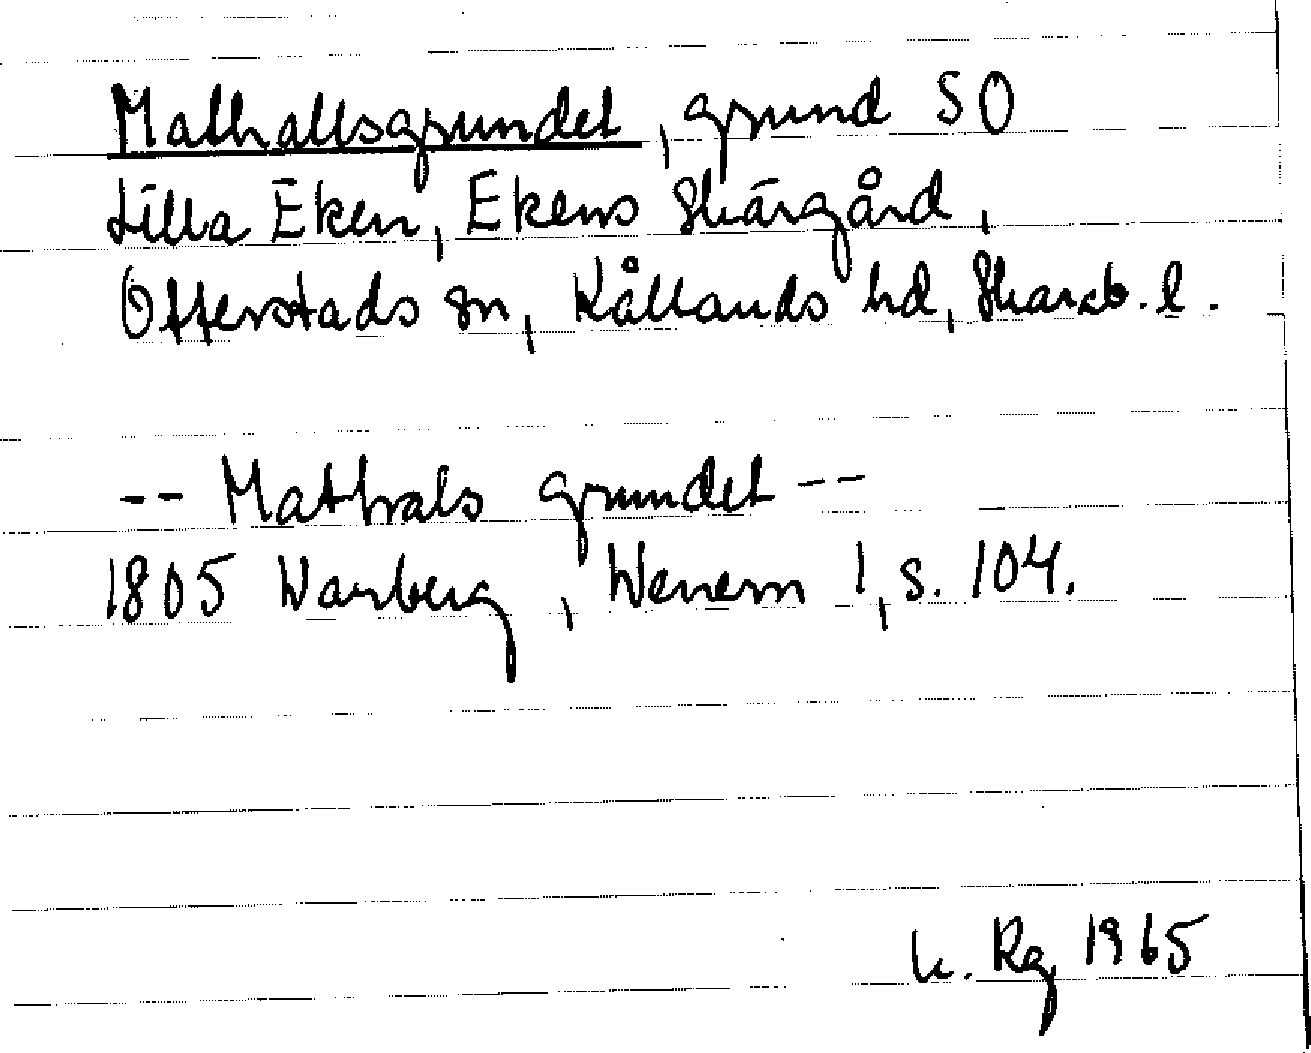 Mathallsgrundet, grund SO
Lilla Eken, Ekens skärgård,
Otterstads sn, Kållands hd, Skarab. l.
-- Mathals grundet --
1805 Warberg, Wenern 1, s. 104.
Rg 1965